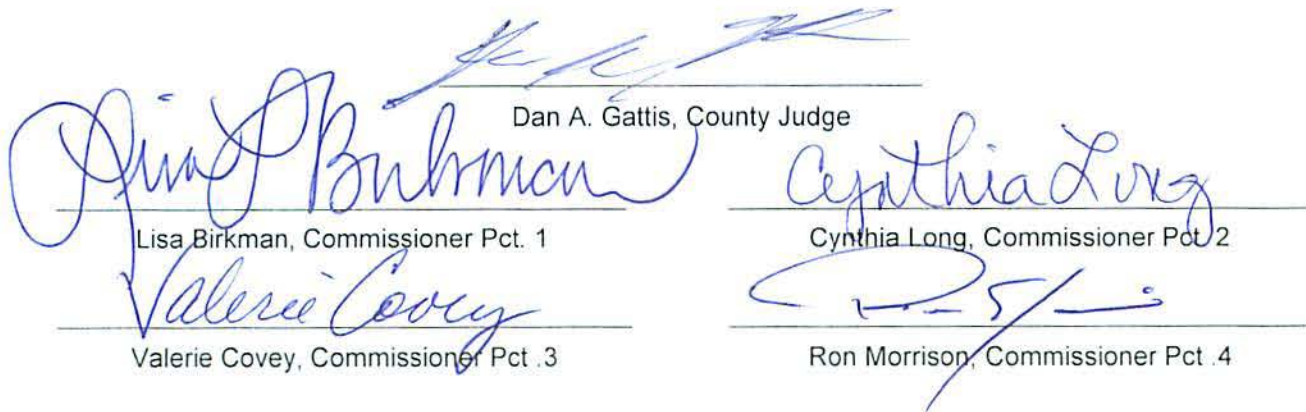 Dan A. Gattis, County Judge
Lisa Birkman
Cynthia Long
Lisa Birkman, Commissioner Pct. 1
Cynthia Long, Commissioner Pct. 2
Valerie Covey
Valerie Covey, Commissioner Pct .3
Ron Morrison, Commissioner Pct .4